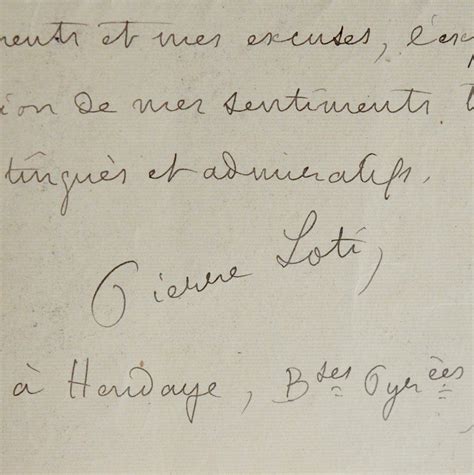 ments et mes excuses, l'exp
ion de mes sentiments t
tingués et admiratifs.
Pierre Loti,
à Hendaye, Bses Pyrées